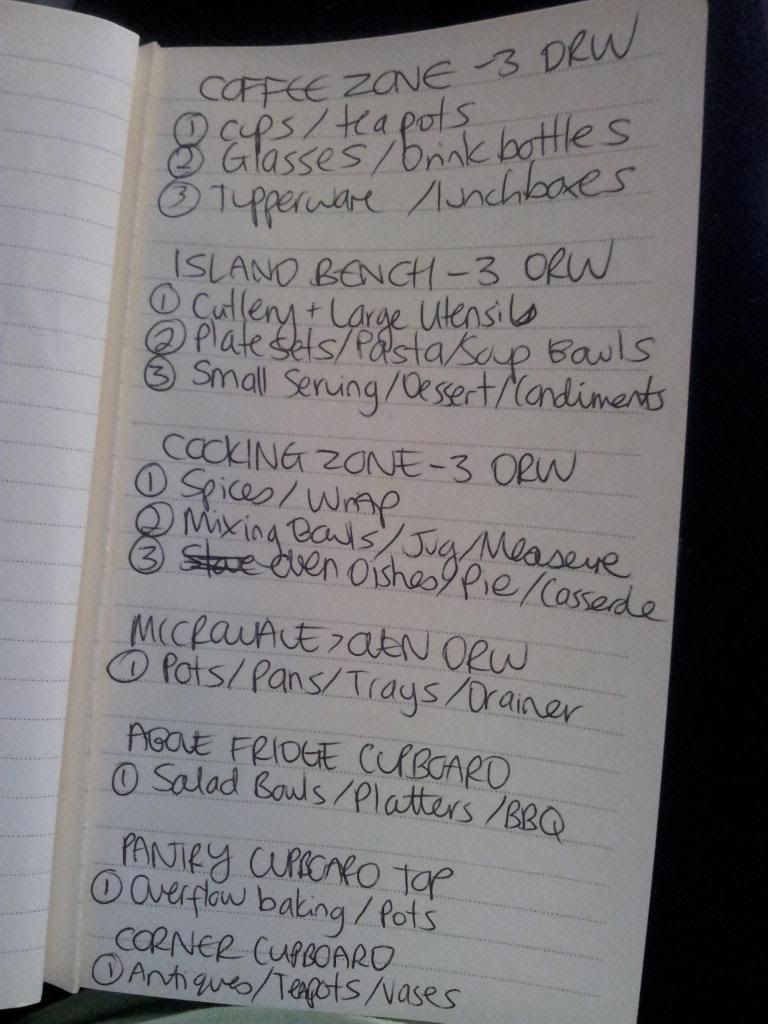 COFFEE ZONE - 3 DRW
① Cups/teapots
② Glasses/Drink bottles
③ Tupperware /lunchboxes
ISLAND BENCH - 3 DRW
① Cutlery + Large Utensils
② Plate Sets/Pasta/Soup Bowls
③ Small Serving/Dessert/Condiments
COOKING ZONE - 3 DRW
① Spices/Wrap
② Mixing Bowls/Jug/Measure
③ Oven Dishes/Pie/Casserole
MICROWAVE > OVEN DRW
① Pots/Pans/Trays/Drainer
ABOVE FRIDGE CUPBOARD
① Salad Bowls/Platters/BBQ
PANTRY CUPBOARD TOP
① Overflow baking/Pots
CORNER CUPBOARD
① Antiques/Teapots/Vases